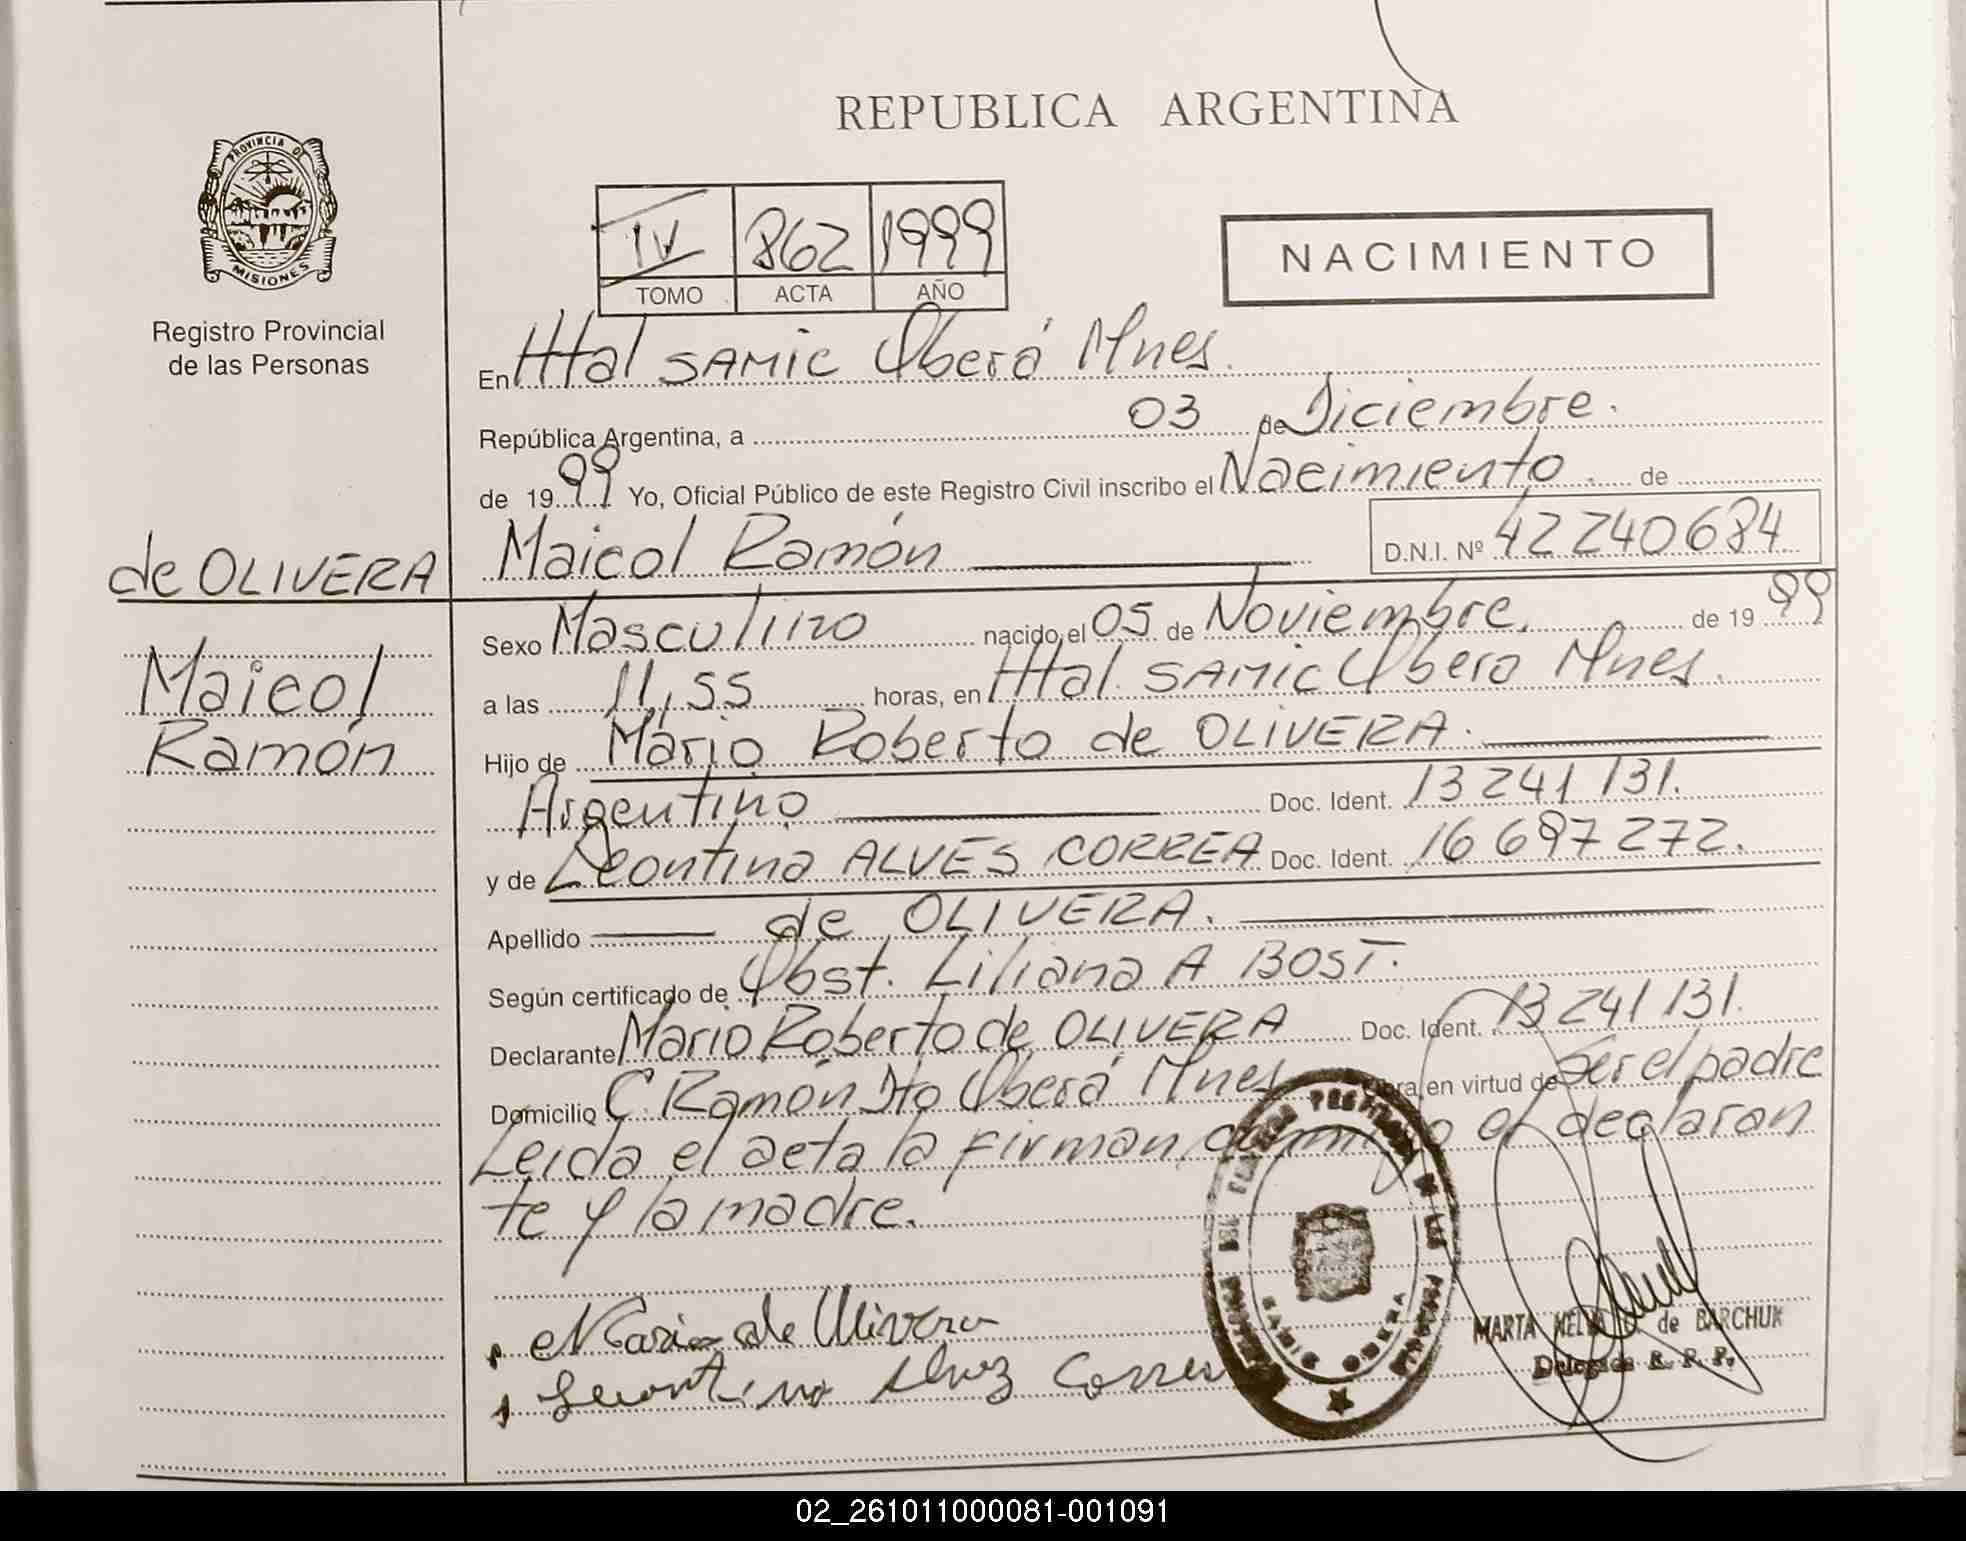 REPUBLICA ARGENTINA
PROVINCIA DE
MISIONES
Registro Provincial
de las Personas
IV 862 1999
TOMO ACTA AÑO
NACIMIENTO
En Htal SAMIC Oberá Mnes.
República Argentina, a 03 de Diciembre.
de 1999 Yo, Oficial Público de este Registro Civil inscribo el Nacimiento de
Maicol Ramón D.N.I. Nº 42240684
de OLIVERA
Maicol
Ramón
Sexo Masculino nacido el 05 de Noviembre, de 1999
a las 11,55 horas, en Htal. SAMIC Obera Mnes.
Hijo de Mario Roberto de OLIVERA.
Argentino Doc. Ident. 13 241 131.
y de Leontina ALVES CORREA Doc. Ident. 16 697 272.
Apellido de OLIVERA.
Según certificado de Obst. Liliana A BOST.
Declarante Mario Roberto de OLIVERA Doc. Ident. 13 241 131.
Domicilio C. Ramón Dto Oberá Mnes Obra en virtud de Ser el padre
Leida el acta la firman, conmigo el declaran
te y la madre.
Mario de Olivera
Leontina Alvez Correa
SAMIC OBERA
MARTA de BARCHUK
Delegada R. P. P.
02_261011000081-001091